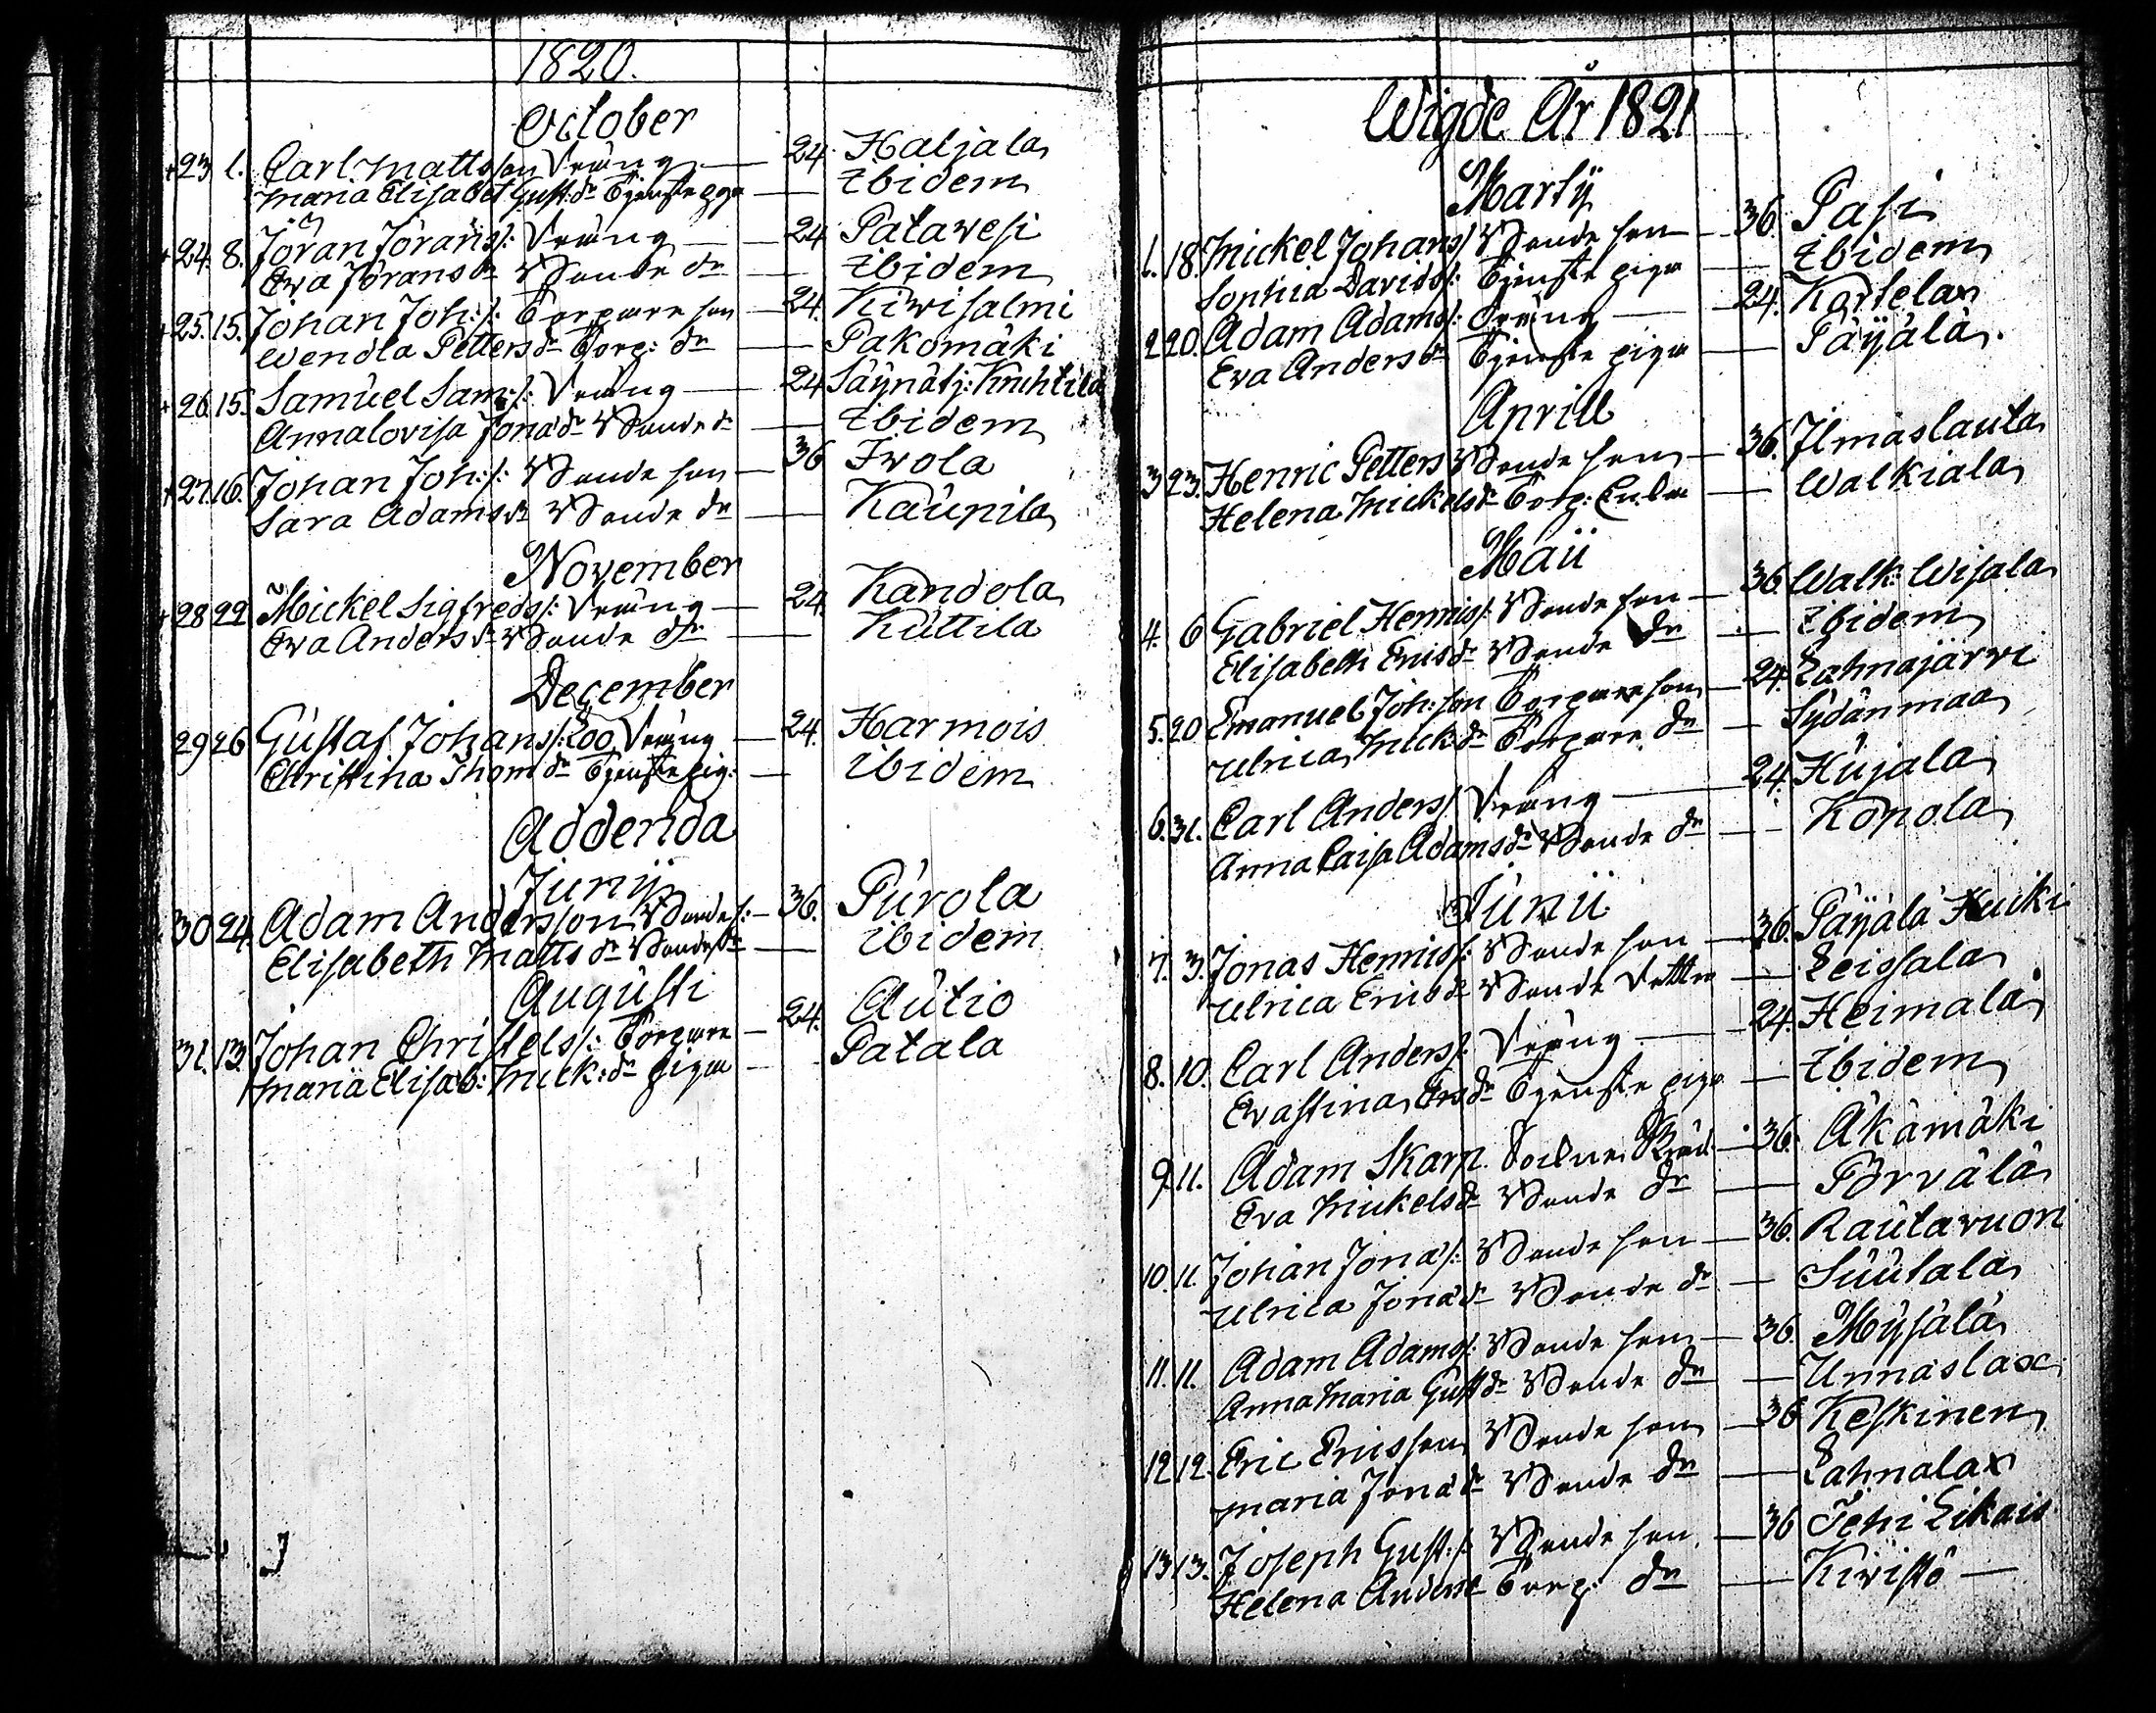 1820.
October
+23 1. Carl Mattsson Dräng — 24. Haljala
Maria Elisabet Gust: dr Tjenste pga — Ibidem
+24. 8. Jöran Jörans/: Dräng — 24 Patavesi
Eva Jörans dr Bonde dr — Ibidem
+25. 15. Johan Joh:/: Torpare son — 24. Kivisalmi
Wendla Petters dr Torp: dr — Pakomäki
+26. 15. Samuel Sam:/: Dräng — 24 Säynätj: Kuhtila
Annalovisa Jona dr Bonde dr — Ibidem
+27. 16. Johan Joh:/: Bonde son — 36 Iwola
Sara Adams dr Bonde dr — Kaupila
November
+28 22. Mickel Sigfreds/: Dräng — 24. Kandola
Eva Anders dr Bonde dr — Kuttila
December
29 26 Gustaf Johans/: Dräng — 24. Harmois
Christina Thom dr Tjenste pig: — ibidem
Addenda
Junij
30 24. Adam Andersson Bonde/: — 36. Purola
Elisabeth Matts dr Bonde dr — ibidem
Augusti
31. 13. Johan Christels/: Torpare — 24. Autio
Maria Elisab: Mick: dr piga — Patala
Wigde År 1821
Martij
1. 18. Mickel Johans/ Bonde son — 36. Pasi
Sophia Davids/: Tjenste piga — Ibidem
2 20. Adam Adams/: Dräng — 24. Kartela
Eva Anders dr Tjenste piga — Päyälä.
Aprill
3 23. Henric Petters Bonde son — 36. Ilmaslauta
Helena Mickels dr Torp: Enka — Walkiala
Maii
4. 6 Gabriel Henrics/: Bonde son — 36 Walk: Wisala
Elisabeth Erics dr Bonde dr — Ibidem
5. 20 Emanuel Joh:son Torpare son — 24. Lahnajärvi
Ulrica Mick dr Torpare dr — Sydänmaa
6. 31. Carl Anders/ Dräng — 24. Hujala
Anna Caisa Adams dr Bonde dr — Kopola
Junii
7. 3. Jonas Henrics/: Bonde son — 36. Päyälä Huiki
Ulrica Erics dr Bonde Dotter — Leissala
8. 10. Carl Anders/: Dräng — 24. Heimala
Evastina Ers dr Tjenste piga — Ibidem
9. 11. Adam Skarp. Sockne Skräd. — 36. Äkämäki
Eva Mickels dr Bonde dr — Pörvälä
10. 11. Johan Jona/: Bonde son — 36. Rautavuon
Ulrica Jona dr Bonde dr — Suutala
11. 11. Adam Adams/: Bonde son — 36. Mysälä
Anna Maria Gust dr Bonde dr — Unnaslax
12 12. Eric Ericsson Bonde son — 36 Keskinen
Maria Jona dr Bonde dr — Lahnalax
13 13. Joseph Gust:/: Bonde son. — 36 Tehi Likais
Helena Anders Torp: dr — Kivistö —